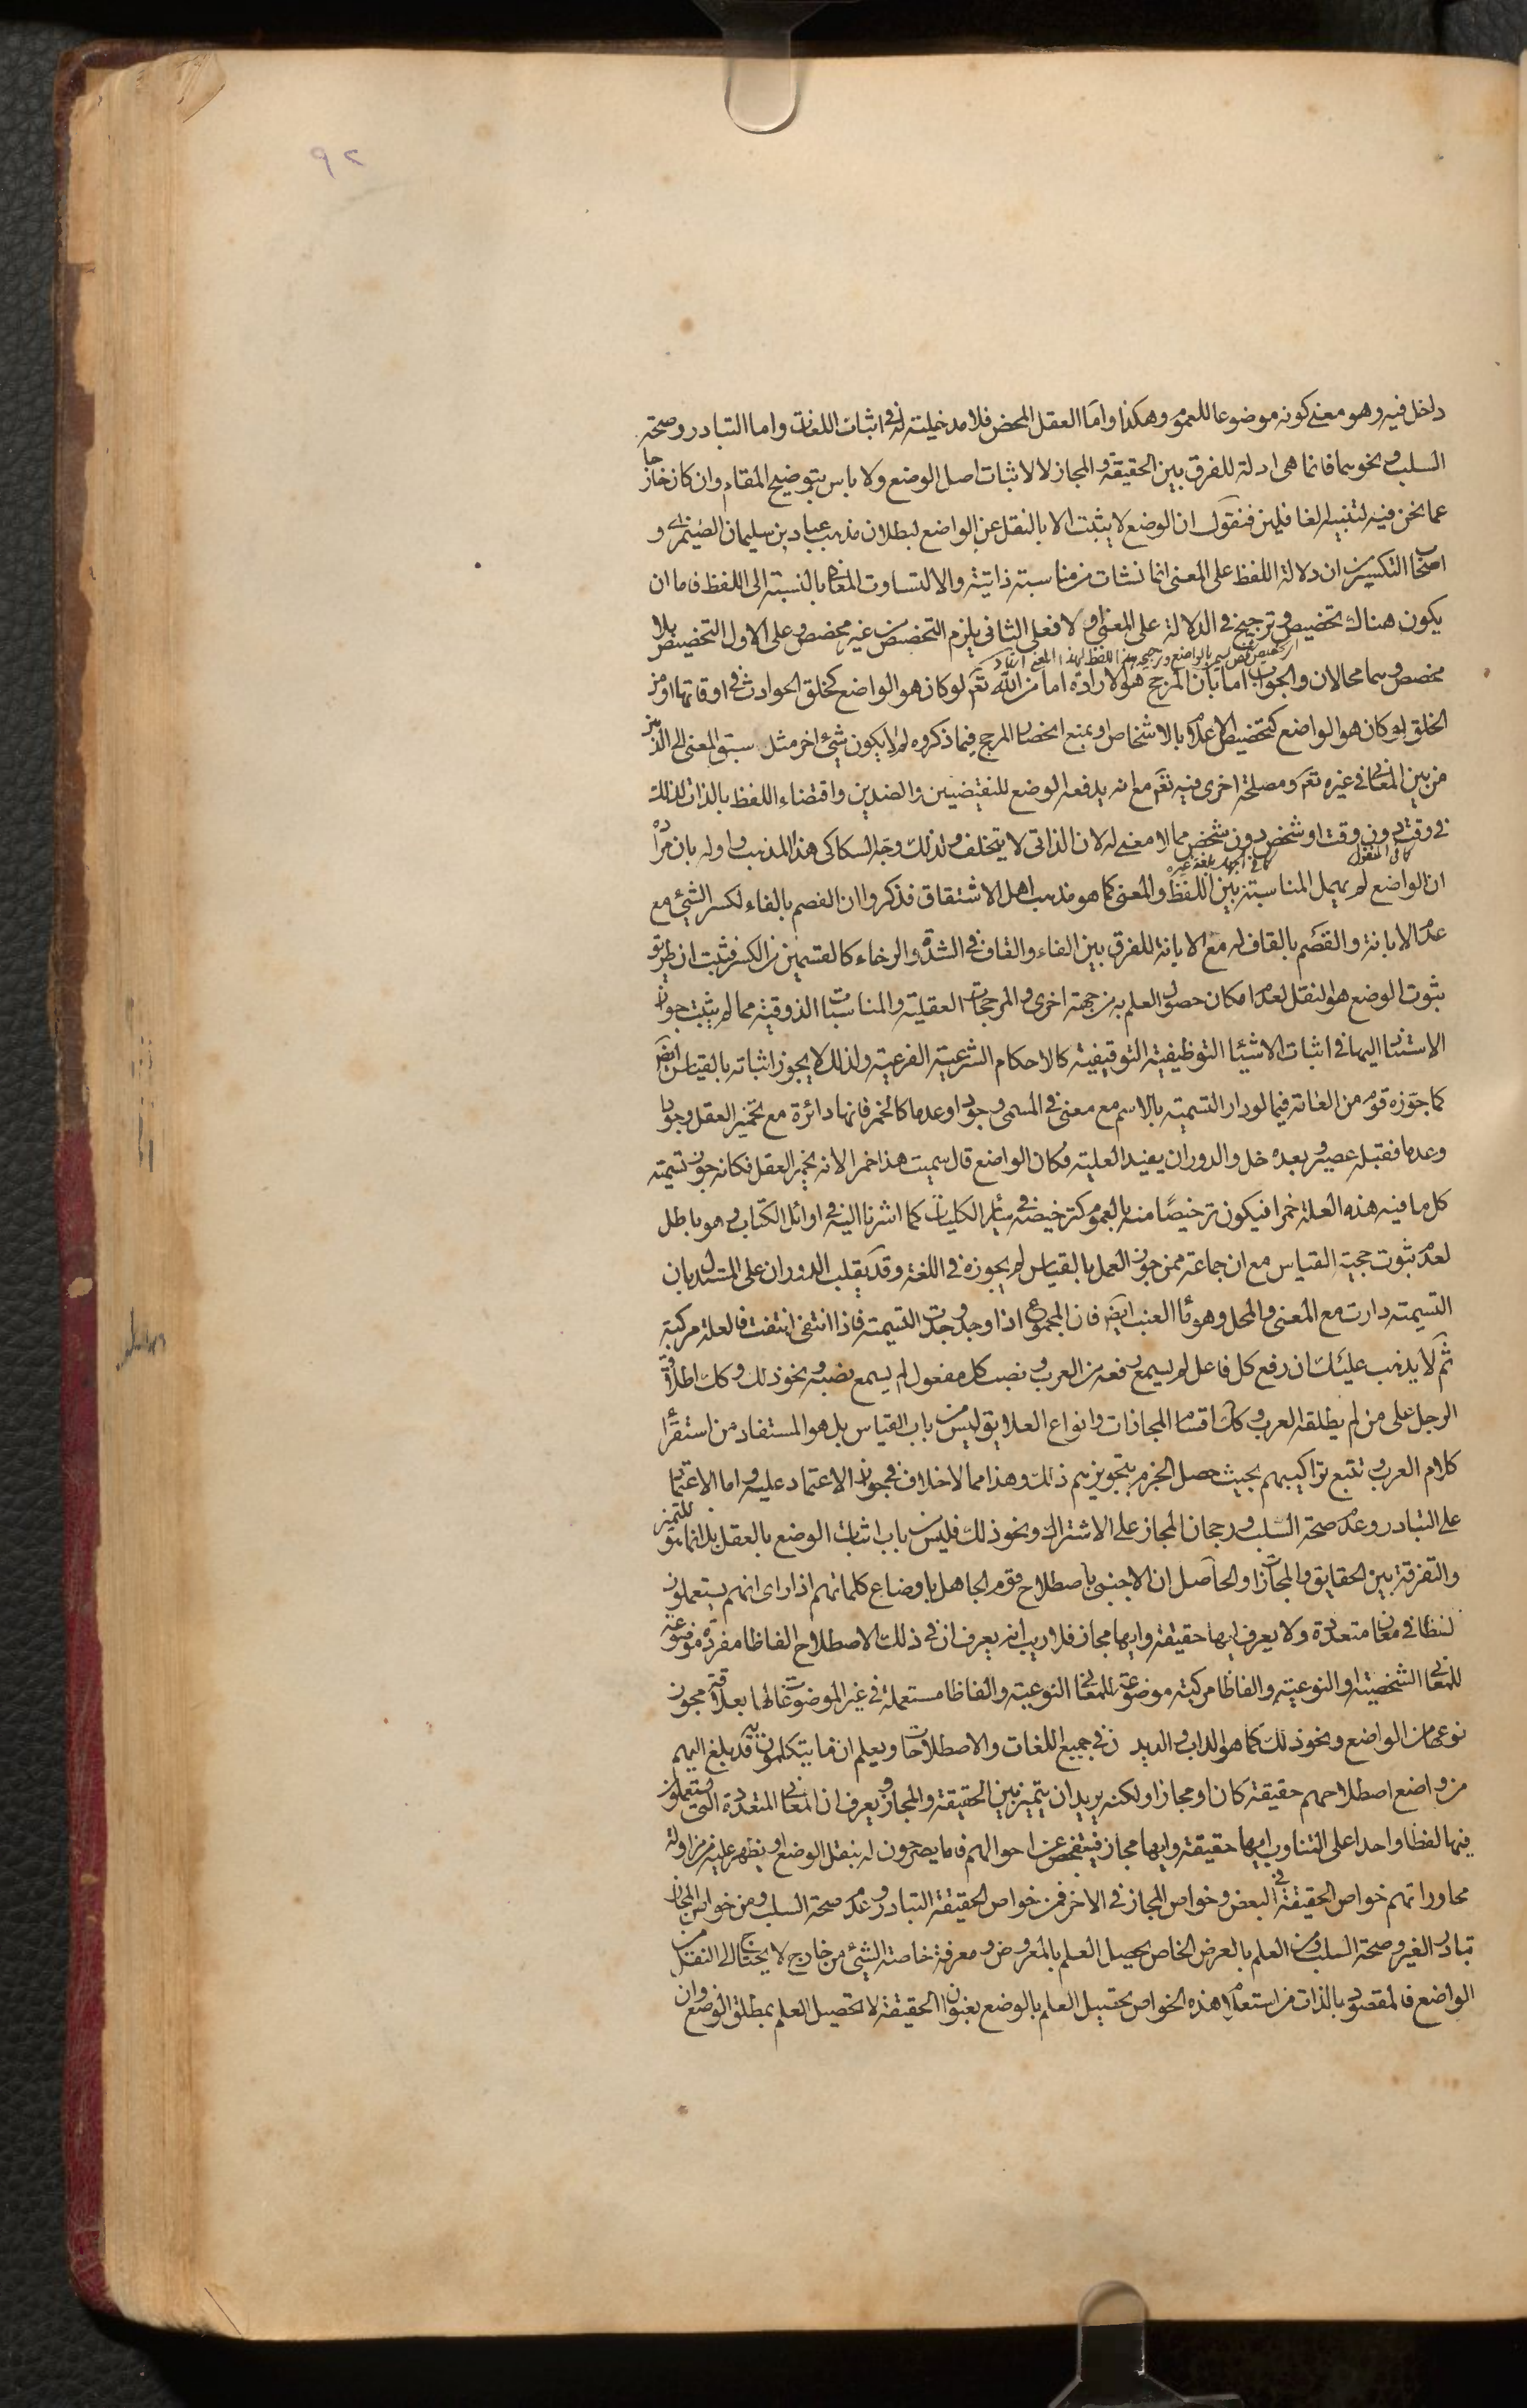 ٩٢
داخل فيه وهو معنى كونه موضوعا للعموم وهكذا واما العقل المحض فلا مدخلية له في اثبات اللغات واما التبادر وصحة
السلب ونحوهما فانما هي ادلة للفرق بين الحقيقة والمجاز لا لاثبات اصل الوضع ولا باس بتوضيح المقام وان كان خارجا
عما نحن فيه لتنبيه الغافلين فنقول ان الوضع لا يثبت الا بالنقل عن الواضع لبطلان مذهب عباد بن سليمان الصيمري و
اصحاب التكسير من ان دلالة اللفظ على المعنى انما نشات من مناسبة ذاتية والا لتساوت المعاني بالنسبة الى اللفظ فاما ان
يكون هناك تخصيص وترجيح في الدلالة على المعنى ام لا فعلى الثاني يلزم التخصيص من غير مخصص وعلى الاول التخصيص بلا
مخصص وهما محالان والجواب اما بان المرجح هو الارادة اما من الله تعم لو كان هو الواضع كخلق الحوادث في اوقاتها او من
الخلق لو كان هو الواضع كتخصيص الاعلام بالاشخاص او بمنع انحصار المرجح فيما ذكروه لم لا يكون شيئ اخر مثل سبق المعنى الى الذهن
من بين المعاني في غيره تعم ومصلحة اخرى فيه تعم مع انه يدفعه الوضع للنقيضين والضدين واقتضاء اللفظ بالذات لذلك
في وقت دون وقت او شخص دون شخص مما لا معنى له لان الذاتي لا يتخلف ولذلك وجه السكاكي هذا المذهب واوله بان مراده
ان الواضع لم يهمل المناسبة بين اللفظ والمعنى كما هو مذهب اهل الاشتقاق فذكروا ان الفصم بالفاء لكسر الشيئ مع
عدم الابانة والقصم بالقاف له مع الابانة للفرق بين الفاء والقاف في الشدة والرخاء كالقسمين من الكسر فثبت ان طريق
ثبوت الوضع هو النقل لعدم امكان حصول العلم به من جهة اخرى والمرجحات العقلية والمناسبات الذوقية مما لم يثبت جواز
الاستناد اليها في اثبات الاشياء التوظيفية التوقيفية كالاحكام الشرعية الفرعية ولذلك لا يجوز اثباته بالقياس ايض
كما جوزه قوم من العامة فيما لو دار التسمية بالاسم مع معنى في المسمى وجودا وعدما كالخمر فانها دائرة مع تخمير العقل وجودا
وعدما فقبله عصير وبعده خل والدوران يفيد العلية فكان الواضع قال سميت هذا خمرا لانه يخمر العقل فكانه جوز تسمية
كل ما فيه هذه العلة خمرا فيكون ترخيصا منه بالعموم كترخيصه في سائر الكليات كما اشرنا اليه في اوائل الكتاب وهو باطل
لعدم ثبوت حجية القياس مع ان جماعة ممن جوز العمل بالقياس لم يجوزه في اللغة وقد يقلب الدوران على المستدل بان
التسمية دارت مع المعنى والمحل وهو ماء العنب ايض فان المجموع اذا وجد وجدت التسمية فاذا انتفى انتفت فالعلة مركبة
ثم لا يذهب عليك ان رفع كل فاعل لم يسمع رفعه من العرب ونصب كل مفعول لم يسمع نصبه ونحو ذلك وكك اطلاق
الرجل على من لم يطلقه العرب وكك اقسام المجازات وانواع العلايق ليس من باب القياس بل هو المستفاد من استقراء
كلام العرب وتتبع تراكيبهم بحيث حصل الجزم بتجويزهم ذلك وهذا مما لا خلاف في جواز الاعتماد عليه واما الاعتماد
على التبادر وعدم صحة السلب ورجحان المجاز على الاشتراك ونحو ذلك فليس من باب اثبات الوضع بالعقل بل انما هو للتميز
والتفرقة بين الحقايق والمجازات والحاصل ان الاجنبي باصطلاح قوم الجاهل باوضاع كلماتهم اذا راى انهم يستعملون
لفظا في معان متعددة ولا يعرف ايها حقيقة وايها مجاز فلا ريب انه يعرف ان في ذلك الاصطلاح الفاظا مفردة موضوعة
للمعاني الشخصية او النوعية والفاظا مركبة موضوعة للمعاني النوعية والفاظا مستعملة في غير الموضوعات لها بعلاقة مجوز
نوعها من الواضع ونحو ذلك كما هو الداب والديدن في جميع اللغات والاصطلاحات ويعلم ان ما يتكلمون به قد بلغ اليهم
من واضع اصطلاحهم حقيقة كان او مجازا ولكنه يريد ان يتميز بين الحقيقة والمجاز ويعرف ان المعاني المتعددة التي يستعملون
فيها لفظا واحدا على التناوب ايها حقيقة وايها مجاز فيتفحص عن احوالهم فاما يصرحون له بنقل الوضع او يظهر عليه من مزاولة
محاوراتهم خواص الحقيقة في البعض وخواص المجاز في الاخر فمن خواص الحقيقة التبادر وعدم صحة السلب ومن خواص المجاز
تبادر الغير وصحة السلب ومن العلم بالعرض الخاص يحصل العلم بالمعروض ومعرفة خاصة الشيئ من خارج لا يحتاج الى النقل من
الواضع فالمقصود بالذات من استعلام هذه الخواص تحصيل العلم بالوضع بعنوان الحقيقة لا تحصيل العلم بمطلق الوضع وان